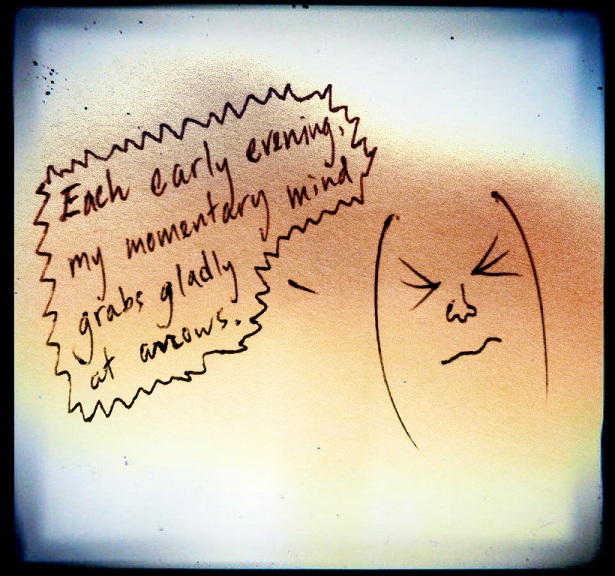 Each early evening,
my momentary mind
grabs gladly
at arrows.